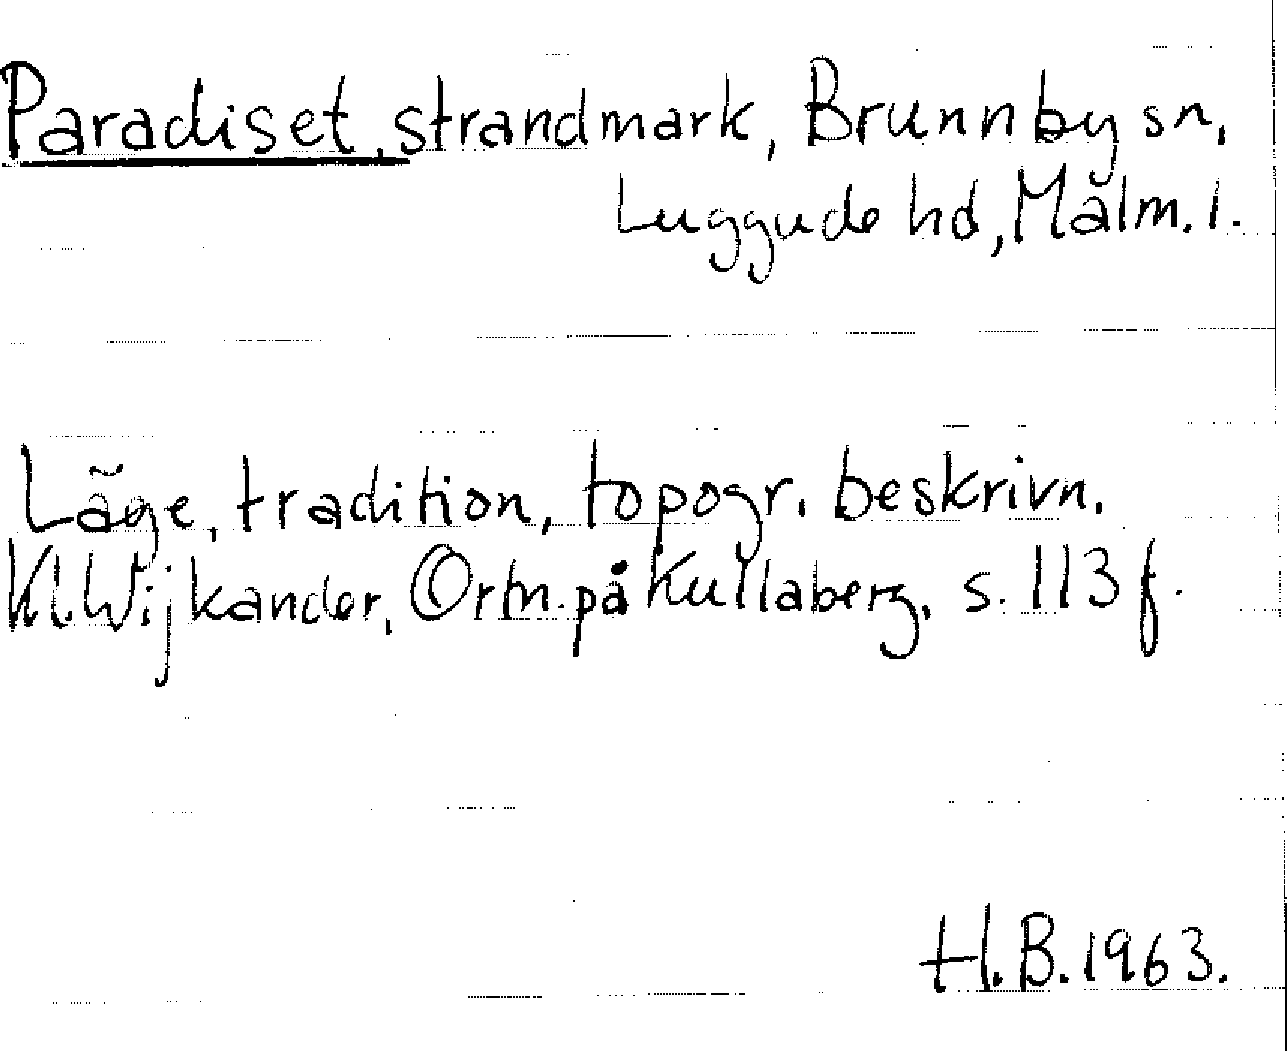 Paradiset, strandmark, Brunnby sn,
Luggude hd, Malm. l.
Läge, tradition, topogr. beskrivn.
Kl. Wijkander, Ortn. på Kullaberg, s. 113 f.
H. B. 1963.